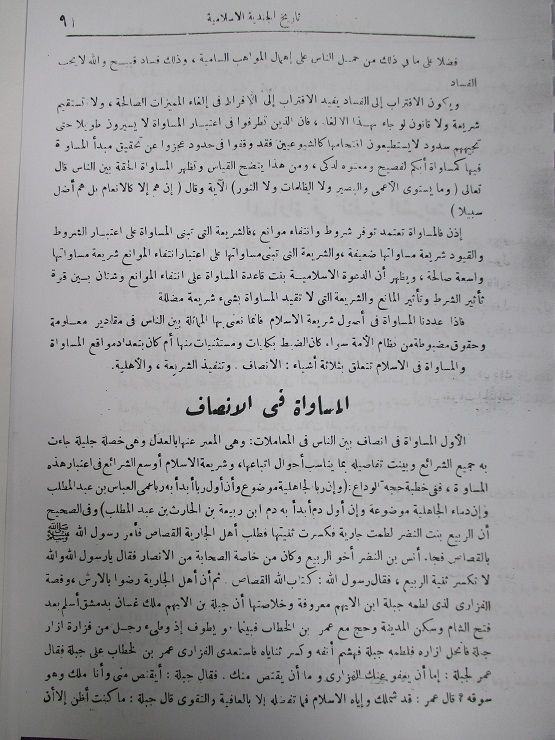 تاريخ الجندية الاسلامية
٩١
فضلا على ما فى ذلك من حمل الناس على إهمال المواهب السامية ، وذلك فساد قبيح والله لا يحب
الفساد
ويكون الاقتراب إلى الفساد بقيد الاقتراب إلى الافراط فى إلغاء المميزات الصالحة ، ولا تستقيم
شريعة ولا قانون لو جاء بهذا الالغاء ، فان الذين تطرفوا فى اعتبار المساواة لا يسيرون طويلا حتى
تجبههم سدود لا يستطيعون اقتحامها كالشيوعيين فقد وقفوا فى حدود عجزوا عن تحقيق مبدأ المساواة
فيها كمساواة أبكم لفصيح ومعتوه لذكى ، ومن هذا يتضح القياس وتظهر المساواة الحقة بين الناس قال
تعالى ( وما يستوى الأعمى والبصير ولا الظلمات ولا النور ) الآية وقال ( إن هم إلا كالانعام بل هم أضل
سبيلا )
إذن فالمساواة تعتمد توفر شروط وانتفاء موانع ، فالشريعة التى تبنى المساواة على اعتبار الشروط
والقيود شريعة مساواتها ضعيفة ، والشريعة التى تبنى مساواتها على اعتبار انتفاء الموانع شريعة مساواتها
واسعة صالحة ، ويظهر أن الدعوة الاسلامية بنت قاعدة المساواة على انتفاء الموانع وشتان بين قوة
تأثير الشرط وتأثير المانع والشريعة التى لا تقيد المساواة بشىء شريعة مضللة
فاذا عددنا المساواة فى أصول شريعة الاسلام فانما نعنى بها المماثلة بين الناس فى مقادير معلومة
وحقوق مضبوطة من نظام الأمة سواء كان الضبط بكليات ومستثنيات منها أم كان بتعداد مواقع المساواة
والمساواة فى الاسلام تتعلق بثلاثة أشياء : الانصاف . وتنفيذ الشريعة ، والأهلية .
المساواة فى الانصاف
الأول المساواة فى انصاف بين الناس فى المعاملات : وهى المعبر عنها بالعدل وهى خصلة جليلة جاءت
به جميع الشرائع وبينت تفاصيله بما يناسب أحوال اتباعها ، وشريعة الاسلام أوسع الشرائع فى اعتبار هذه
المساواة ، ففى خطبة حجة الوداع : (وإن ربا الجاهلية موضوع وأن أول ربا أبدأ به ربا عمى العباس بن عبد المطلب
وإن دماء الجاهلية موضوعة وإن أول دم أبدأ به دم ابن ربيعة بن الحارث بن عبد المطلب) وفى الصحيح
أن الربيع بنت النضر لطمت جارية فكسرت ثنيتها فطلب أهل الجارية القصاص فأمر رسول الله ﷺ
بالقصاص فجاء أنس بن النضر أخو الربيع وكان من خاصة الصحابة من الانصار فقال يا رسول الله والله
لا تكسر ثنية الربيع ، فقال رسول الله : كتاب الله القصاص . ثم أن أهل الجارية رضوا بالارش ، وقصة
الفزارى الذى لطمه جبلة ابن الايهم معروفة وخلاصتها أن جبلة بن الايهم ملك غسان بدمشق أسلم بعد
فتح الشام وسكن المدينة وحج مع عمر بن الخطاب فبينما هو يطوف إذ وطىء رجل من فزارة ازار
جبلة فانحل ازاره فلطمه جبلة فهشم أنفه وكسر ثناياه فاستعدى الفزارى عمر بن الخطاب على جبلة فقال
عمر لجبلة : إما أن يعفو عنك الفزارى و ما أن يقتص منك . فقال جبلة : أيقتص منى وأنا ملك وهو
سوقه ؟ قال عمر : قد شملك وإياه الاسلام فما تفضله إلا بالعافية والتقوى قال جبلة : ما كنت أظن إلا أن